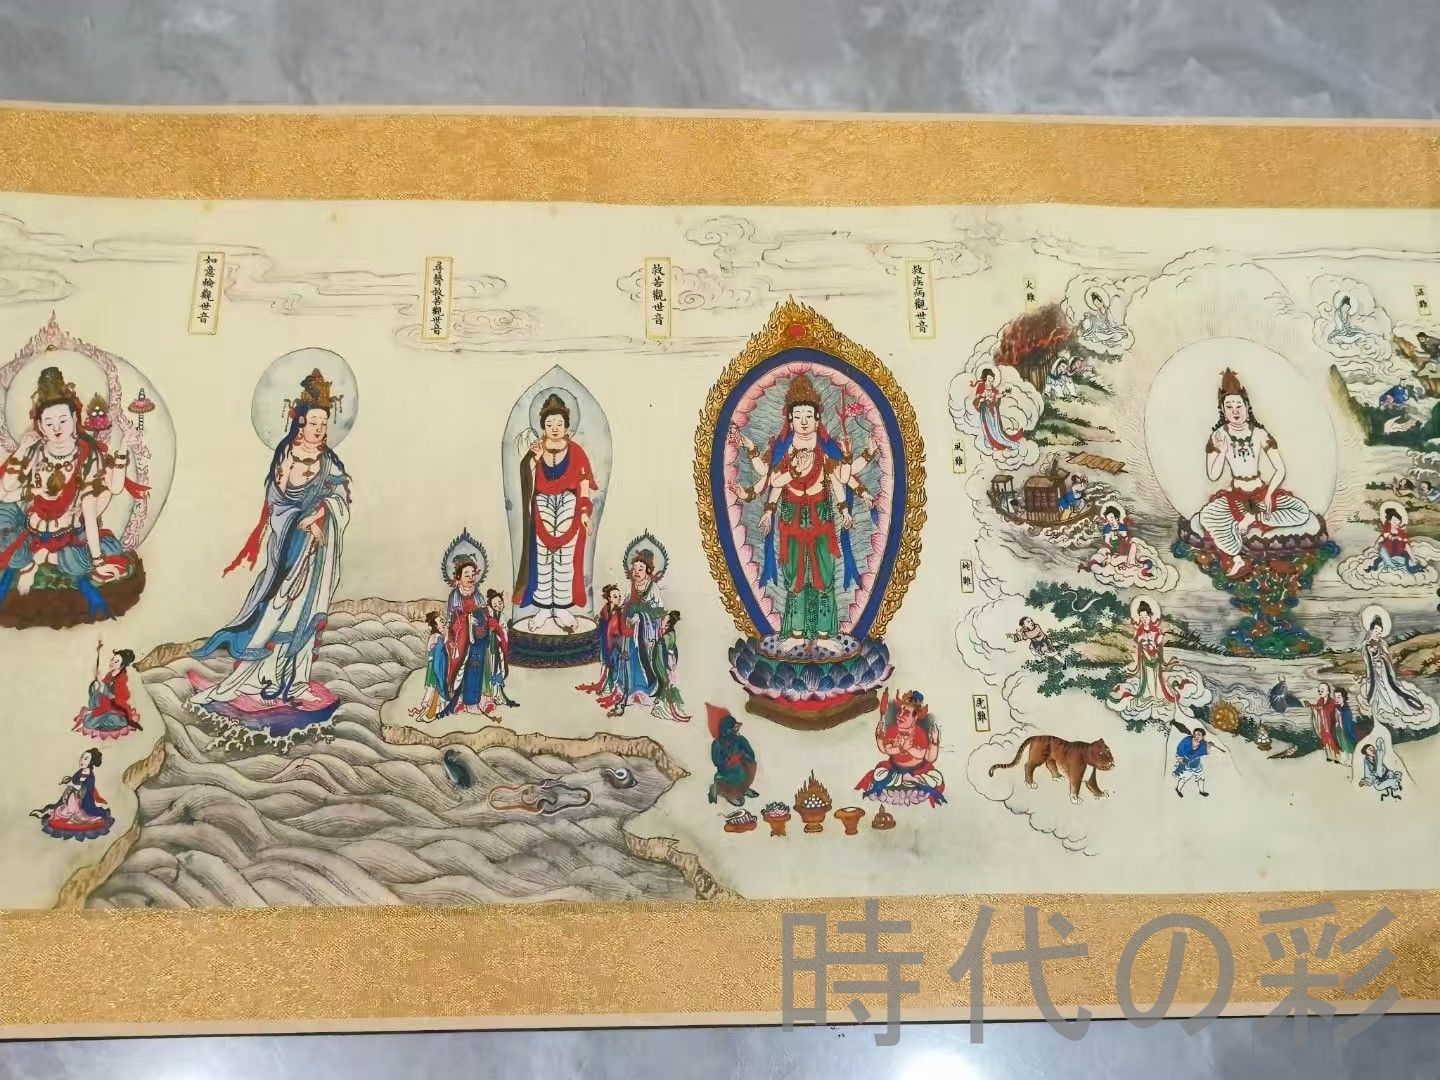 如意輪觀世音
尋聲救苦觀世音
救苦觀世音
救疾病觀世音
火難
風難
蛇難
虎難
時代の彩